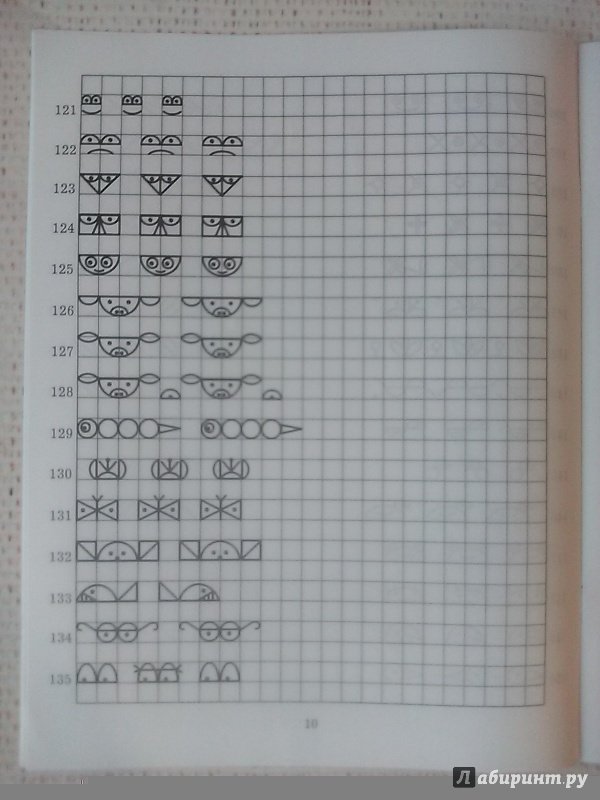 121
122
123
124
125
126
127
128
129
130
131
132
133
134
135
10
Лабиринт.ру